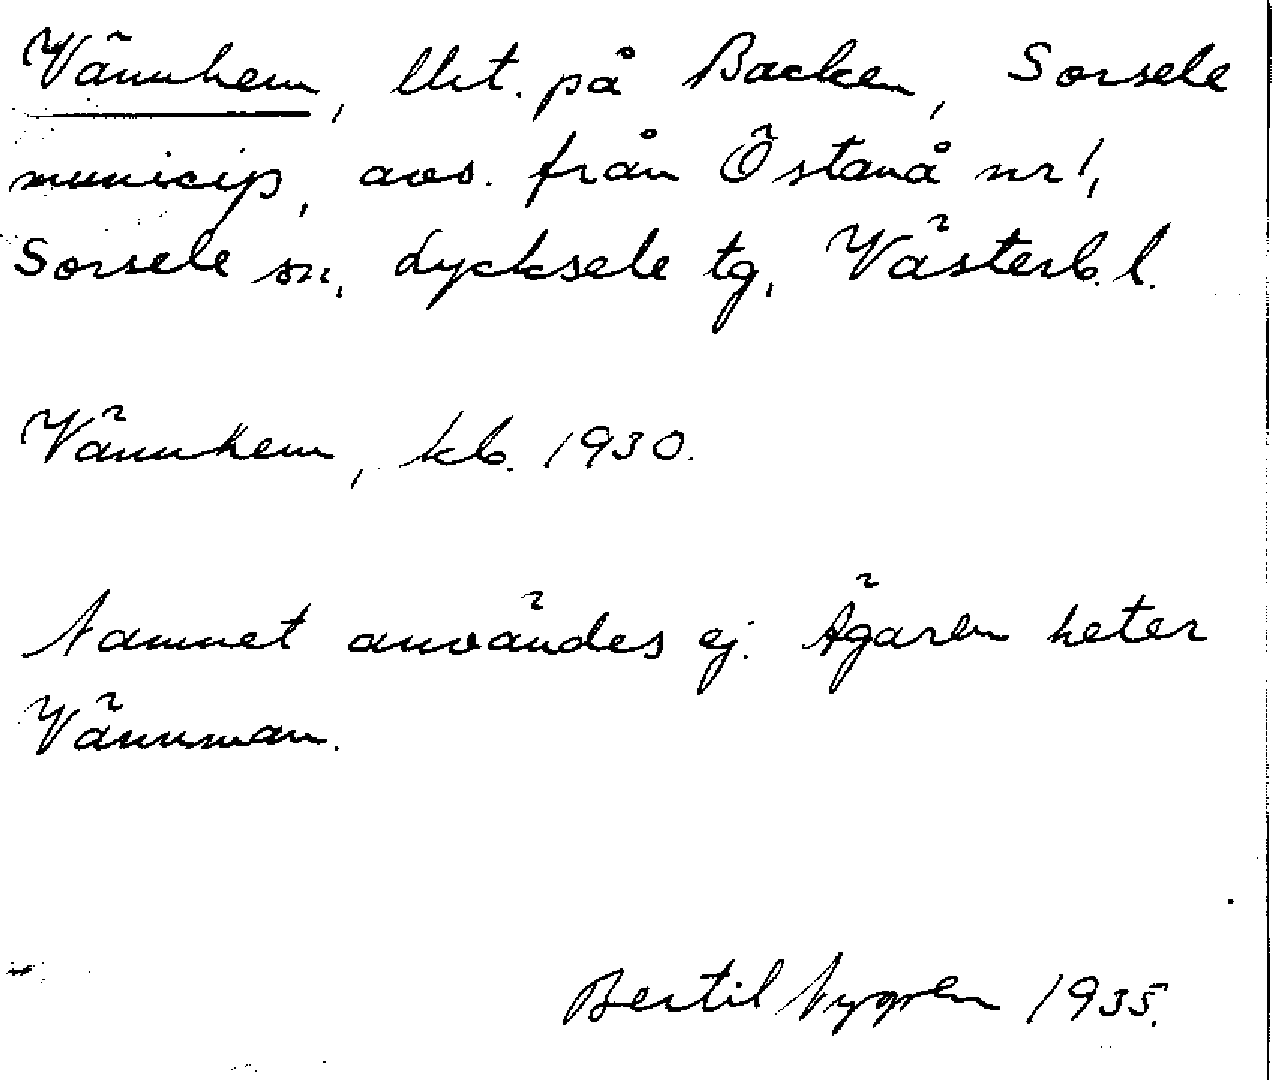 Vännhem, lht. på Backen, Sorsele
municip, avs. från Östanå nr 1,
Sorsele sn, Lycksele tg, Västerb. l.
Vännhem, kb. 1930.
Namnet användes ej. Ägaren heter
Vännman.
Bertil Nygren 1935.